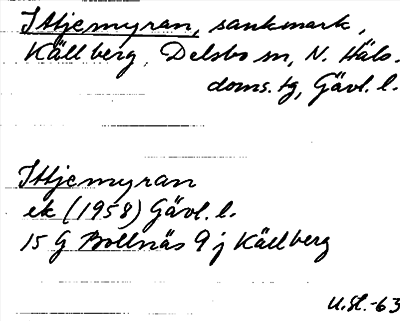 Ittjemyran, sankmark,
Källberg, Delsbo sn, N. Häls.
doms. tg, Gävl. l.
Ittjemyran
ek (1958) Gävl. l.
15 G Bollnäs 9 j Källberg
U.Sl.-63